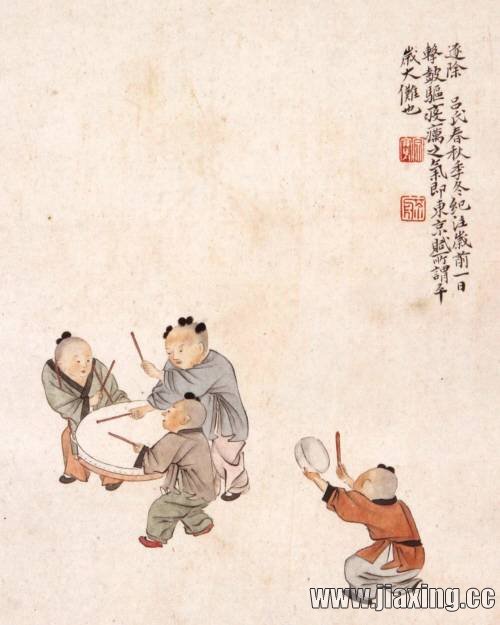 逐除 呂氏春秋季冬紀注歲前一日
擊鼓驅疫癘之氣即東京賦所謂卒
歲大儺也
www.jiaxing.cc